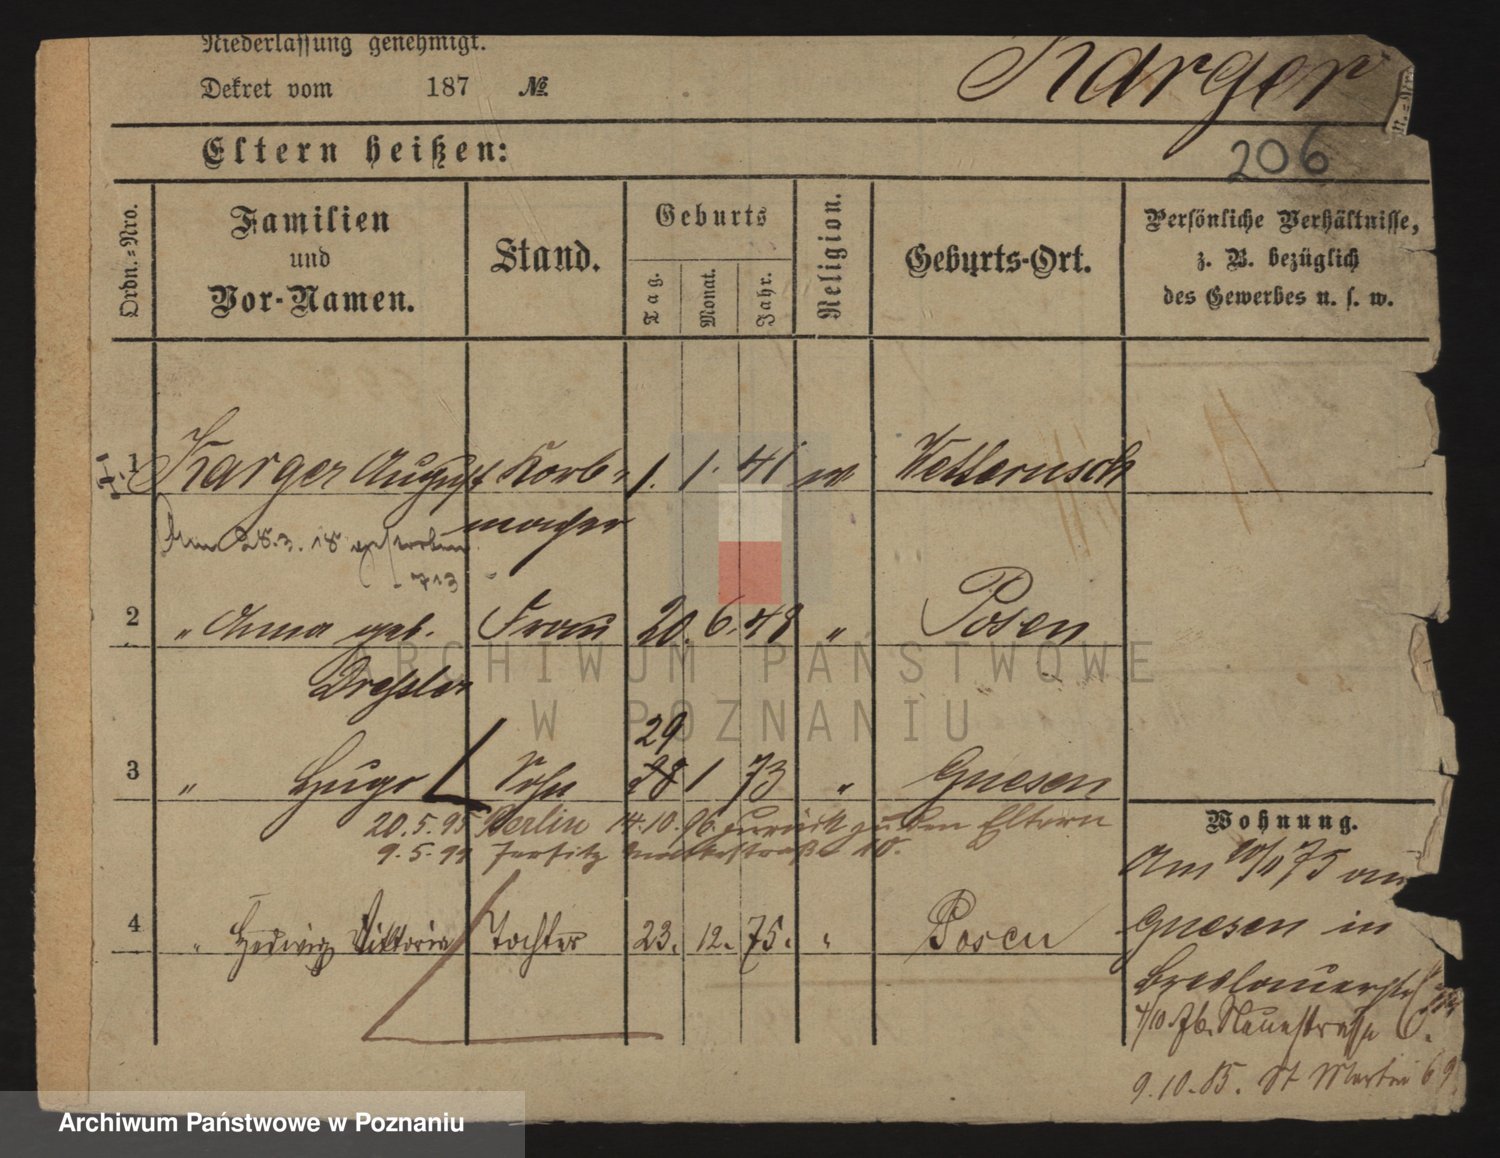 Niederlassung genehmigt.
Dekret vom 187 №
Karger
206
Eltern heißen:
Ordn.-Nro.
Familien
und
Vor-Namen.
Stand.
Geburts
Tag.
Monat.
Jahr.
Religion.
Geburts-Ort.
Persönliche Verhältnisse,
z. B. bezüglich
des Gewerbes u. s. w.
1 Karger August Korb- 1. 1. 41
macher
28.3.18 gestorben
713
2 " Anna geb. Frau 20. 6. 48 " Posen
Dressler
29
3 " Hugo Sohn 28 1 73 " Gnesen
20.5.95 Berlin 14.10.96 zurück zu den Eltern
Jersitz
4 " Hedwig Viktoria Tochter 23. 12. 75. " Posen
Wohnung.
Am 10/11 75 aus
Gnesen in
Breslauerstr.
4/10. 76. Neuestrasse
9.10.85. St Martin 69
ARCHIWUM PAŃSTWOWE
W POZNANIU
Archiwum Państwowe w Poznaniu